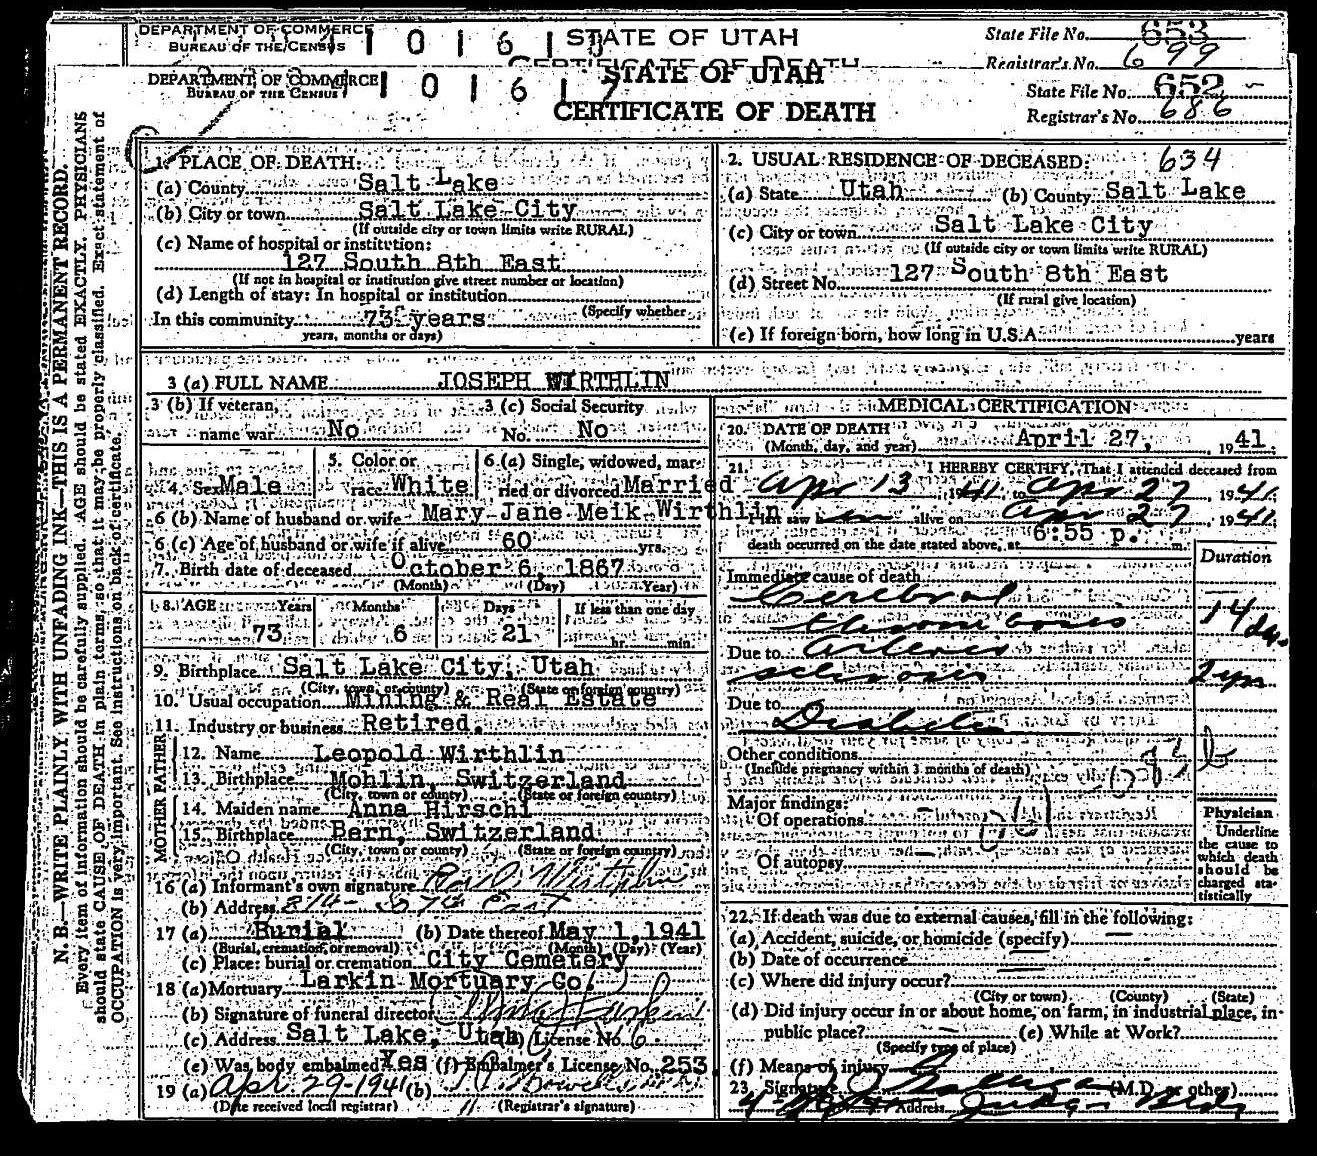 DEPARTMENT OF COMMERCE
BUREAU OF THE CENSUS
STATE OF UTAH
CERTIFICATE OF DEATH
State File No. 653
Registrar's No. 699
DEPARTMENT OF COMMERCE
BUREAU OF THE CENSUS
STATE OF UTAH
CERTIFICATE OF DEATH
State File No. 652
Registrar's No. 686
N. B.—WRITE PLAINLY, WITH UNFADING INK—THIS IS A PERMANENT RECORD.
Every item of information should be carefully supplied. AGE should be stated EXACTLY. PHYSICIANS
should state CAUSE OF DEATH in plain terms, so that it may be properly classified. Exact statement of
OCCUPATION is very important. See instructions on back of certificate.
1. PLACE OF DEATH:
(a) County Salt Lake
(b) City or town Salt Lake City
(If outside city or town limits write RURAL)
(c) Name of hospital or institution:
127 South 8th East
(If not in hospital or institution give street number or location)
(d) Length of stay: In hospital or institution
(Specify whether
In this community 73 years
years, months or days)
2. USUAL RESIDENCE OF DECEASED: 634
(a) State Utah (b) County Salt Lake
(c) City or town Salt Lake City
(If outside city or town limits write RURAL)
(d) Street No. 127 South 8th East
(If rural give location)
(e) If foreign born, how long in U.S.A. years
3 (a) FULL NAME JOSEPH WIRTHLIN
3 (b) If veteran, 3 (c) Social Security
name war No No. No
4. Sex Male 5. Color or race White 6 (a) Single, widowed, married or divorced Married
6 (b) Name of husband or wife Mary Jane Meik Wirthlin
6 (c) Age of husband or wife if alive 60 yrs.
7. Birth date of deceased October 6, 1867
(Month) (Day) (Year)
8. AGE Years Months Days If less than one day
73 6 21 hr. min.
9. Birthplace Salt Lake City, Utah
(City, town or county) (State or foreign country)
10. Usual occupation Mining & Real Estate
11. Industry or business Retired.
FATHER
12. Name Leopold Wirthlin
13. Birthplace Mohlin, Switzerland
(City, town or county) (State or foreign country)
MOTHER
14. Maiden name Anna Hirschi
15. Birthplace Bern, Switzerland
(City, town or county) (State or foreign country)
16 (a) Informant's own signature Wirthlin
(b) Address 314 - So 7th East
17 (a) Burial (b) Date thereof May 1, 1941
(Burial, cremation, or removal) (Month) (Day) (Year)
(c) Place: burial or cremation City Cemetery
18 (a) Mortuary Larkin Mortuary Co.
(b) Signature of funeral director Larkin
(c) Address Salt Lake, Utah (d) License No. 6.
(e) Was body embalmed Yes (f) Embalmer's License No. 253
19 (a) Apr. 29-1941 (b)
(Date received local registrar) (Registrar's signature)
MEDICAL CERTIFICATION
20. DATE OF DEATH
(Month, day, and year) April 27, 1941.
21. I HEREBY CERTIFY, That I attended deceased from
Apr 13, 1941, to Apr 27, 1941
I last saw him alive on Apr 27, 1941
death occurred on the date stated above, at 6:55 p. m.
Duration
Immediate cause of death
Cerebral
thrombosis 14 da.
Due to Arterio
sclerosis 2 yrs
Due to
Diabetes
Other conditions
(Include pregnancy within 3 months of death)
Major findings:
Of operations
Of autopsy
Physician
Underline
the cause to
which death
should be
charged sta-
tistically
22. If death was due to external causes, fill in the following:
(a) Accident, suicide, or homicide (specify)
(b) Date of occurrence
(c) Where did injury occur?
(City or town) (County) (State)
(d) Did injury occur in or about home, on farm, in industrial place, in
public place? (e) While at Work?
(Specify type of place)
(f) Means of injury
23. Signature (M.D. or other)
Address Judge Bldg